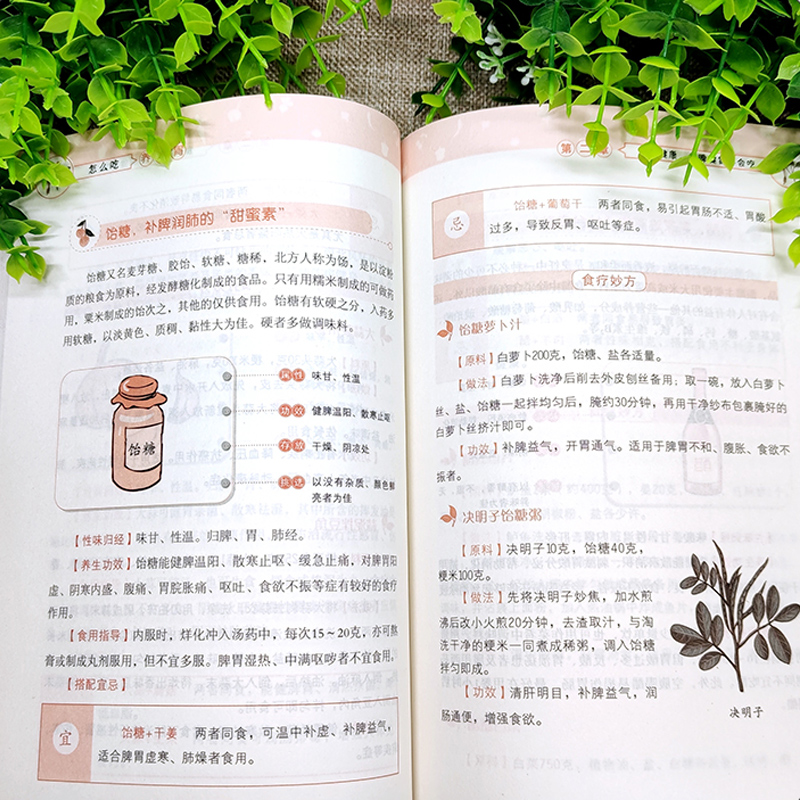 怎么吃
饴糖，补脾润肺的“甜蜜素”
饴糖又名麦芽糖、胶饴、软糖、糖稀，北方人称为饧，是以淀粉
质的粮食为原料，经发酵糖化制成的食品。只有用糯米制成的可做药
用，粟米制成的饴次之，其他的仅供食用。饴糖有软硬之分，入药多
用软糖，以淡黄色、质稠、黏性大为佳。硬者多做调味料。
饴糖
深性 味甘、性温
功效 健脾温阳、散寒止呕
存放 干燥、阴凉处
挑选 以没有杂质、颜色鲜
亮者为佳
【性味归经】味甘、性温。归脾、胃、肺经。
【养生功效】饴糖能健脾温阳、散寒止呕、缓急止痛，对脾胃阳
虚、阴寒内盛、腹痛、胃脘胀痛、呕吐、食欲不振等症有较好的食疗
作用。
【食用指导】内服时，烊化冲入汤药中，每次15～20克，亦可熬
膏或制成丸剂服用，但不宜多服。脾胃湿热、中满呕哕者不宜食用。
【搭配宜忌】
宜
饴糖+干姜 两者同食，可温中补虚、补脾益气，
适合脾胃虚寒、肺燥者食用。
第二章
忌
饴糖+葡萄干 两者同食，易引起胃肠不适、胃酸
过多，导致反胃、呕吐等症。
食疗妙方
饴糖萝卜汁
【原料】白萝卜200克，饴糖、盐各适量。
【做法】白萝卜洗净后削去外皮刨丝备用；取一碗，放入白萝卜
丝、盐、饴糖一起拌均匀后，腌约30分钟，再用干净纱布包裹腌好的
白萝卜丝挤汁即可。
【功效】补脾益气，开胃通气。适用于脾胃不和、腹胀、食欲不
振者。
决明子饴糖粥
【原料】决明子10克，饴糖40克，
粳米100克。
【做法】先将决明子炒焦，加水煎
沸后改小火煎20分钟，去渣取汁，与淘
洗干净的粳米一同煮成稀粥，调入饴糖
拌匀即成。
【功效】清肝明目，补脾益气，润
肠通便，增强食欲。
决明子